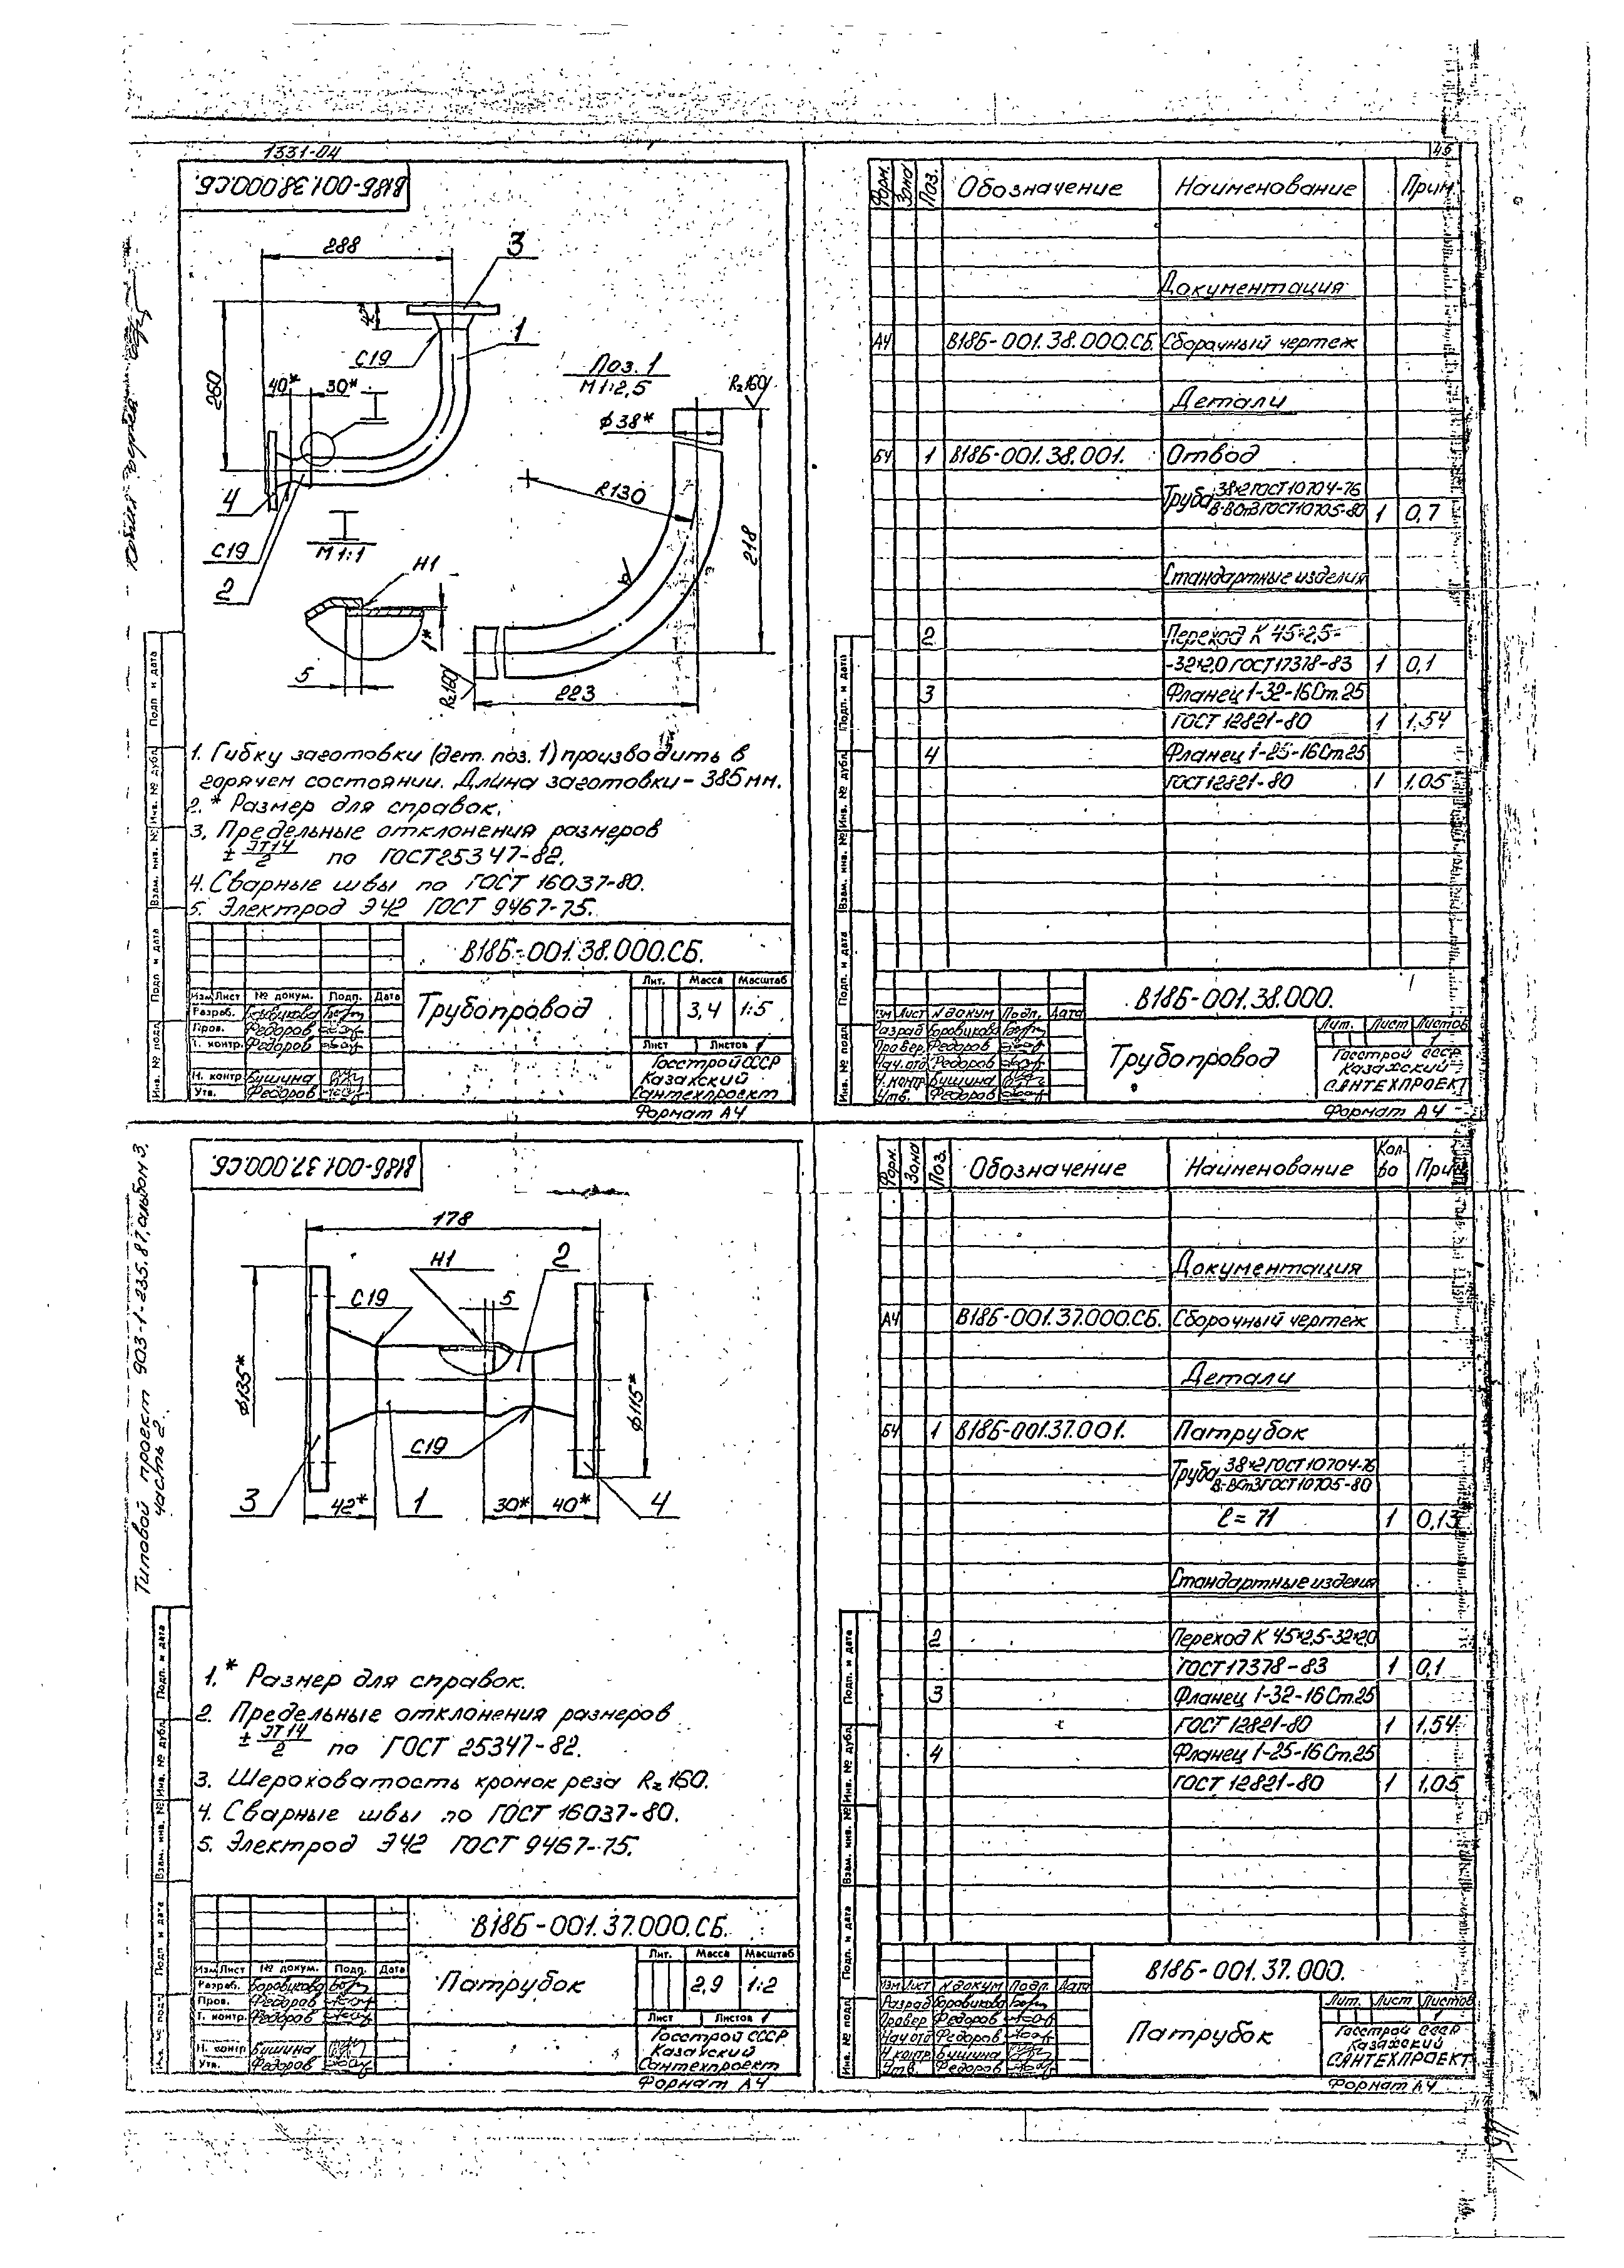 1331-04
45
В18Б-001.38.000СБ.
288
3
42*
1
С19
260
40*
30*
I
Поз. 1
М 1:2,5
Rz160
ϕ38*
R130
218
4
С19
2
I
М 1:1
Н1
1*
5
Rz160
223
1. Гибку заготовки (дет. поз. 1) производить в
горячем состоянии. Длина заготовки - 385 мм.
2. * Размер для справок.
3. Предельные отклонения размеров
± JT14/2 по ГОСТ 25347-82.
4. Сварные швы по ГОСТ 16037-80.
5. Электрод Э42 ГОСТ 9467-75.
В18Б-001.38.000.СБ.
Трубопровод
Лит. Масса Масштаб
3,4 1:5
Лист Листов 1
Изм Лист № докум. Подп. Дата
Разраб. Боровикова
Пров. Федоров
Т. контр. Федоров
Н. контр Бушина
Утв. Федоров
Госстрой СССР
Казахский
Сантехпроект
Формат А4
Подп. и дата
Инв. № дубл.
Взам. инв. №
Подп. и дата
Инв. № подл.
Форм. Зона Поз. Обозначение Наименование Прим.
Документация
А4 В18Б-001.38.000.СБ. Сборочный чертеж
Детали
БЧ 1 В18Б-001.38.001. Отвод
Труба 38×2 ГОСТ 10704-76
В-ВСт3 ГОСТ 10705-80 1 0,7
Стандартные изделия
2 Переход К 45×2,5-
-32×2,0 ГОСТ 17378-83 1 0,1
3 Фланец 1-32-16 Ст.25
ГОСТ 12821-80 1 1,54
4 Фланец 1-25-16 Ст.25
ГОСТ 12821-80 1 1,05
Подп. и дата
Инв. № дубл.
Взам. инв. №
Подп. и дата
Инв. № подл.
В18Б-001.38.000.
Изм Лист N докум Подп. Дата
Разраб Боровикова
Провер Федоров
Нач.отд Федоров
Н.контр Бушина
Утв. Федоров
Трубопровод
Лит. Лист Листов
1
Госстрой СССР
Казахский
САНТЕХПРОЕКТ
Формат А4
Типовой проект 903-1-235.87 альбом 3,
часть 2.
В18Б-001.37.000.СБ.
178
Н1
2
С19
5
ϕ135*
ϕ115*
С19
3
42*
1
30*
40*
4
1. * Размер для справок.
2. Предельные отклонения размеров
± JT14/2 по ГОСТ 25347-82.
3. Шероховатость кромок реза Rz 160.
4. Сварные швы по ГОСТ 16037-80.
5. Электрод Э42 ГОСТ 9467-75.
В18Б-001.37.000.СБ.
Патрубок
Лит. Масса Масштаб
2,9 1:2
Лист Листов 1
Изм Лист № докум. Подп. Дата
Разраб. Боровикова
Пров. Федоров
Т. контр. Федоров
Н. контр Бушина
Утв. Федоров
Госстрой СССР
Казахский
Сантехпроект
Формат А4
Подп. и дата
Инв. № дубл.
Взам. инв. №
Подп. и дата
Инв. № подл.
Форм. Зона Поз. Обозначение Наименование Кол-во Прим
Документация
А4 В18Б-001.37.000.СБ. Сборочный чертеж
Детали
БЧ 1 В18Б-001.37.001. Патрубок
Труба 38×2 ГОСТ 10704-76
В-ВСт3 ГОСТ 10705-80
ℓ = 71 1 0,13
Стандартные изделия
2 Переход К 45×2,5-32×2,0
ГОСТ 17378-83 1 0,1
3 Фланец 1-32-16 Ст.25
ГОСТ 12821-80 1 1,54
4 Фланец 1-25-16 Ст.25
ГОСТ 12821-80 1 1,05
Подп. и дата
Инв. № дубл.
Взам. инв. №
Подп. и дата
Инв. № подл.
В18Б-001.37.000.
Изм Лист N докум Подп. Дата
Разраб Боровикова
Провер Федоров
Нач.отд Федоров
Н.контр Бушина
Утв. Федоров
Патрубок
Лит. Лист Листов
1
Госстрой СССР
Казахский
САНТЕХПРОЕКТ
Формат А4